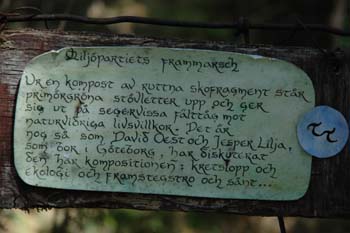 Miljöpartiets frammarsch
Ur en kompost av ruttna skofragment står
primörgröna stövletter upp och ger
sig ut på segervissa fälttåg mot
naturvidriga livsvillkor. Det är
nog så som David Oest och Jesper Lilja,
som bor i Göteborg, har diskuterat
den här kompositionen; kretslopp och
ekologi och framstegstro och sånt...